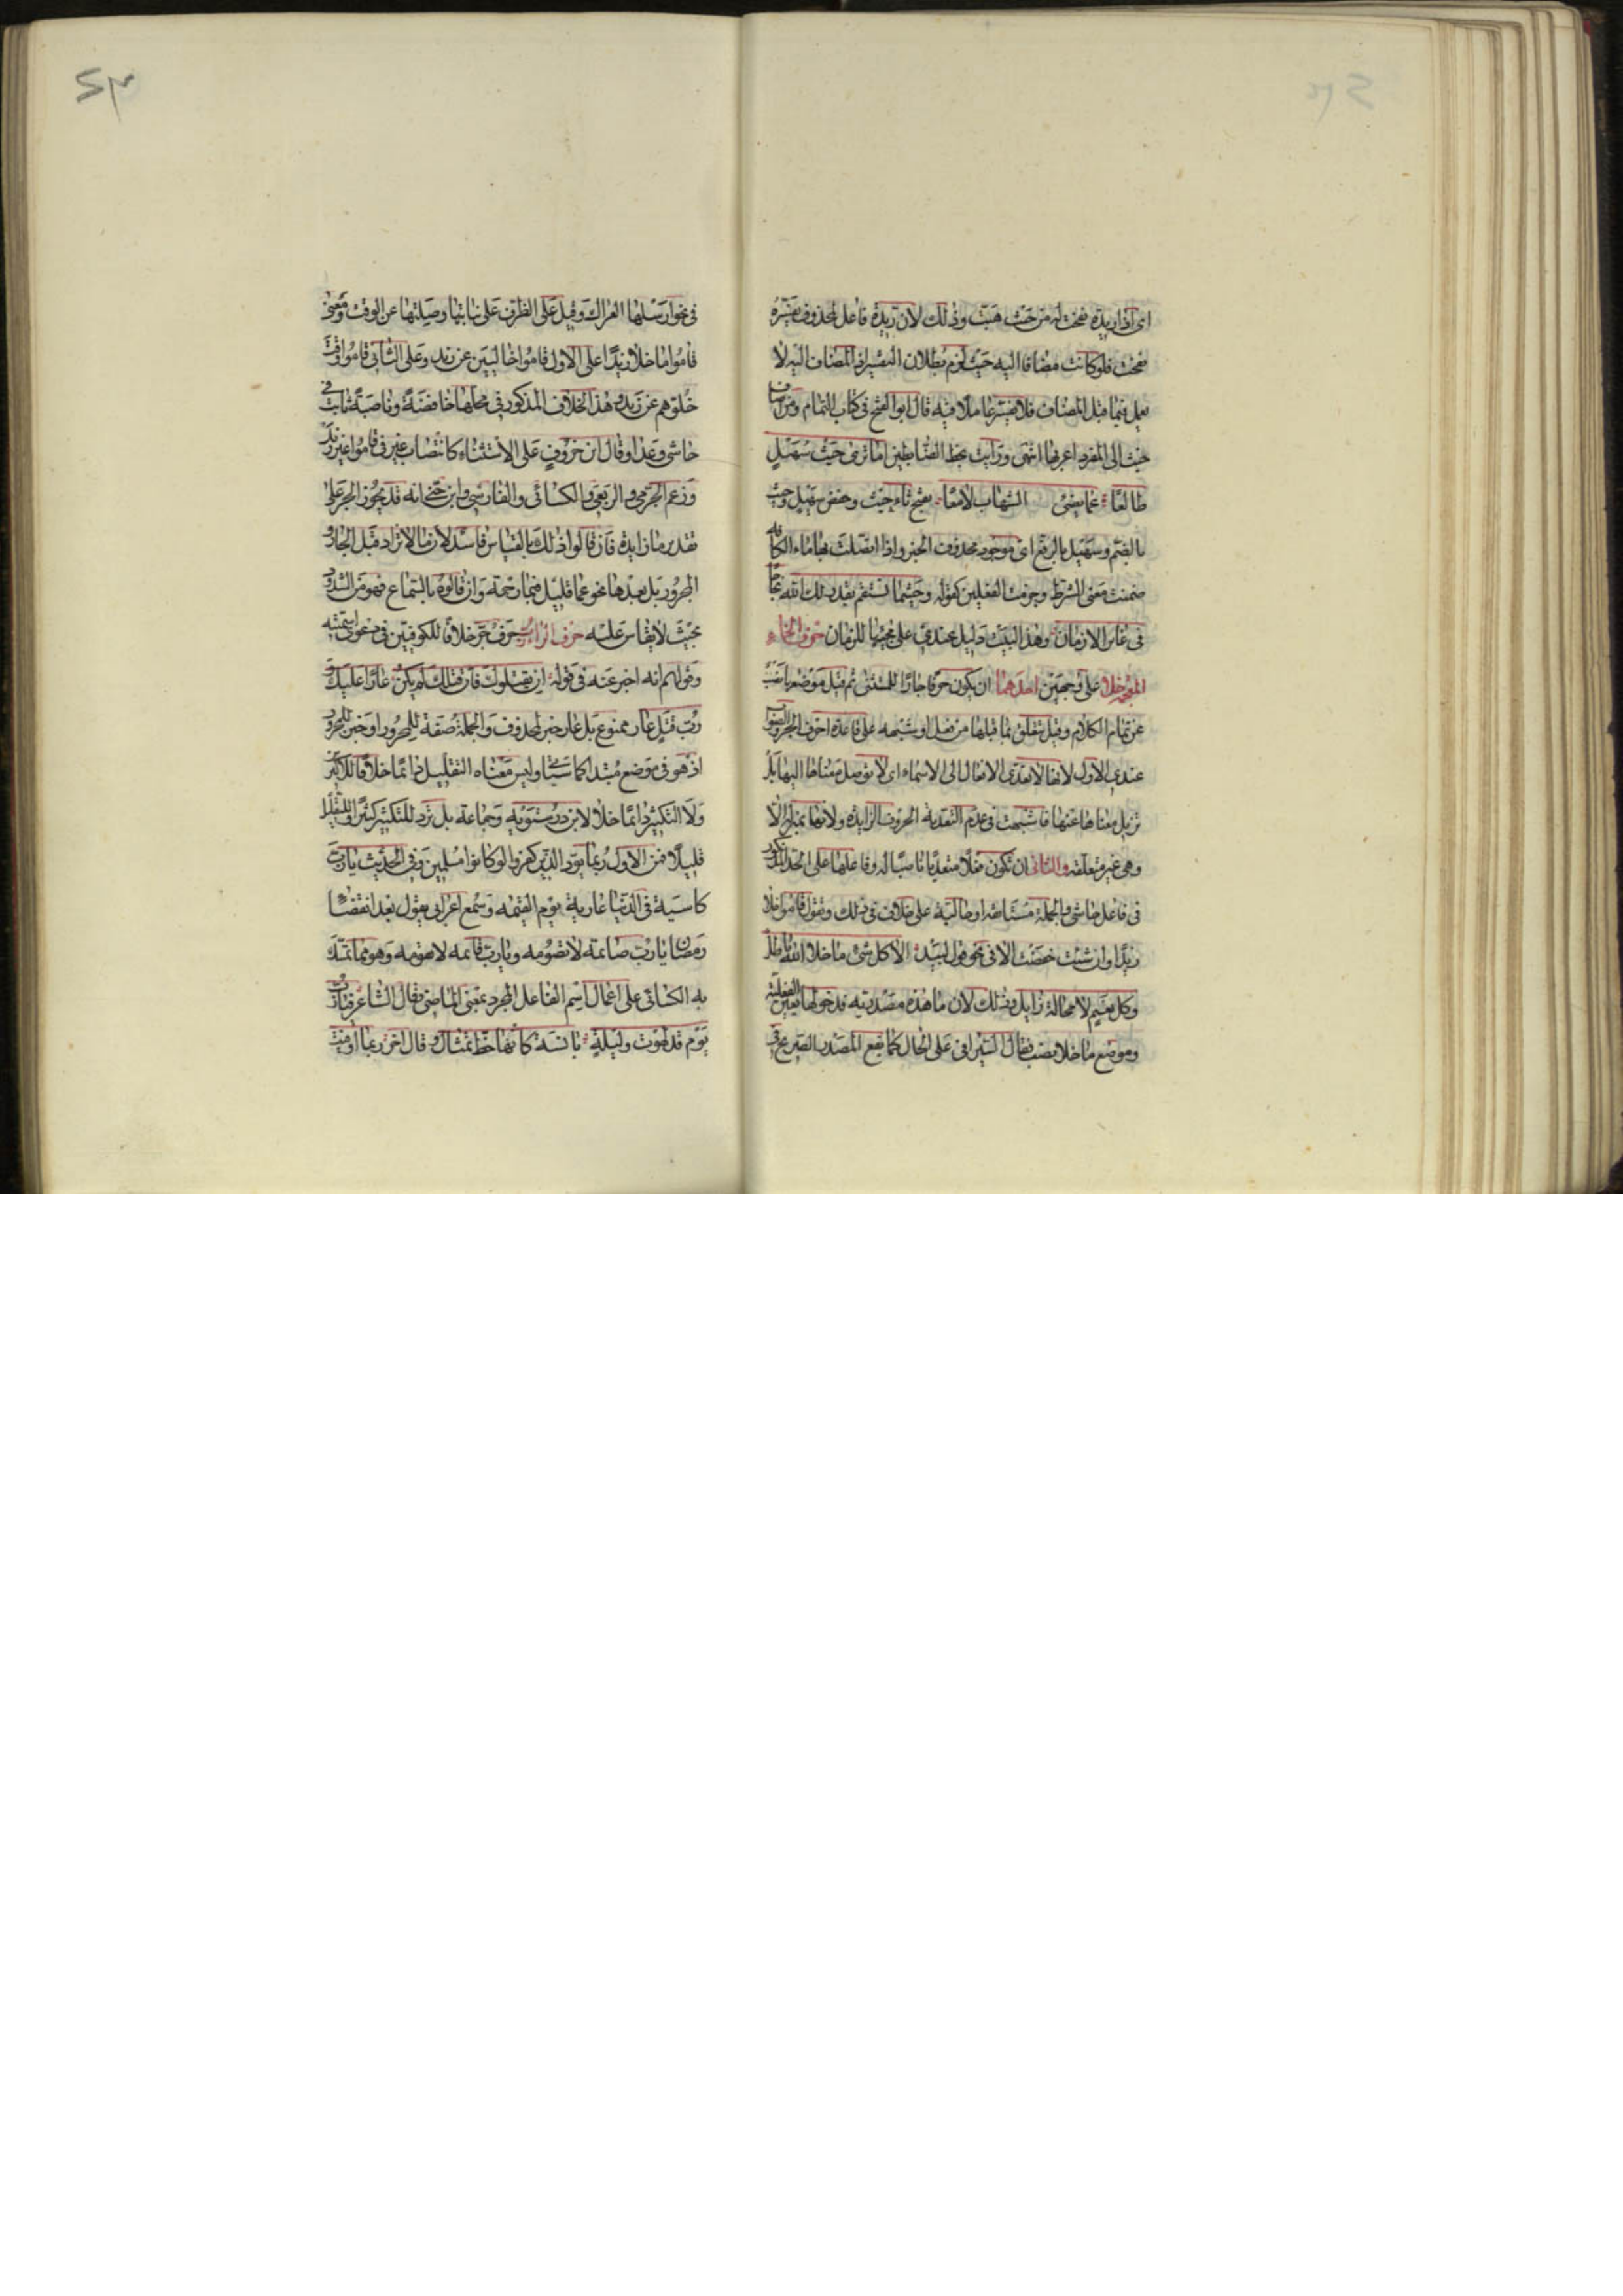 اى اذا ريدة نفحت له من حيث هبت وذلك لان ريدة فاعل لمحذوف يفسره
نفحت فلو كانت مضافا اليه حيث لزم بطلان التفسير اذ المضاف اليه لا
يعمل فيما قبل المضاف فلا يفسر عاملا فيه قال ابو الفتح فى كتاب التمام ومن اضاف
حيث الى المفرد اعربها انتهى ورايت بخط الضابطين اما ترى حيث سهيل
طالعا نجما يضئ الشهاب لامعا بفتح ثاء حيث وخفض سهيل وحيث
بالضم وسهيل بالرفع اى موجود محذوف الخبر واذا اتصلت بها ماء الكافه
ضمنت معنى الشرط وجزمت الفعلين كقوله وحيثما تستقم يقدر لك الله نجاحا
فى غابر الازمان وهذا البيت دليل عندى على مجيئها للزمان حرف الخاء
المعجمه خلا على وجهين احدهما ان يكون حرفا جارا للمستثنى ثم قيل موضعها نصب
عن تمام الكلام وقيل تتعلق بما قبلها من فعل او شبهه على قاعدة احرف الجر والصواب
عندى الاول لانها لا تعدى الافعال الى الاسماء اى لا توصل معناها اليها بل
تزيل معناها عنها فاشبهت فى عدم التعدية الحروف الزايدة ولانها بمنزلة الا
وهى غير متعلقه والثانى ان تكون فعلا متعديا ناصبا له وفاعلها على الحد المذكور
فى فاعل حاشى والجملة مستانفه او حالية على خلاف فى ذلك وتقول قاموا خلا
زيدا وان شئت خفضت الا فى نحو قول لبيد الا كل شئ ما خلا الله باطل
وكل نعيم لا محالة زايل وذلك لان ما هذه مصدرية فدخولها يعين الفعلية
وموضع ما خلا نصب فقال السيرافى على الحال كما يقع المصدر الصريح فى
فى نحو ارسلها العراك وقيل على الظرف على نيابتها وصلتها عن الوقت ومعنى
قاموا ما خلا زيدا على الاول قاموا خاليين عن زيد وعلى الثانى قاموا وقت
خلوهم عن زيد وهذا الخلاف المذكور فى محلها خافضة وناصبة ثابت فى
حاشى وعدا وقال ابن خروف على الاستثناء كانتصاب غير فى قاموا غير زيد
وزعم الجرمى والربعى والكسائى والفارسى وابن جنى انه قد يجوز الجر على
تقدير ما زايدة فان قالوا ذلك بالقياس ففاسد لان ما لا تزاد قبل الجار و
المجرور بل بعدها نحو عما قليل فبما رحمة وان قالوه بالسماع فهو من الشذوذ
بحيث لا يقاس عليه حرف الراء رب حرف جر خلافا للكوفيين فى دعوى اسميته
وقولهم انه اخبر عنه فى قوله ان يقتلوك فان قتلك لم يكن عارا عليك و
رب قتل عار ممنوع بل عار خبر لمحذوف والجملة صفة للمجرور او خبر للمجرور
اذ هو فى موضع مبتدا كما سياتى وليس معناه التقليل دائما خلافا للاكثرين
ولا التكثير دائما خلافا لابن درستويه وجماعة بل ترد للتكثير كثيرا وللتقليل
قليلا فمن الاول ربما يود الذين كفروا لو كانوا مسلمين وفى الحديث يا رب
كاسية فى الدنيا عارية يوم القيمه وسمع اعرابى يقول بعد انقضاء
رمضان يا رب صائمه لا تصومه ويا رب قائمه لا تقومه وهو مما تمسك
به الكسائى على اعمال اسم الفاعل المجرد بمعنى الماضى وقال الشاعر فيا رب
يوم قد لهوت وليلة بانسه كانها خط تمثال وقال اخر ربما اوفيت